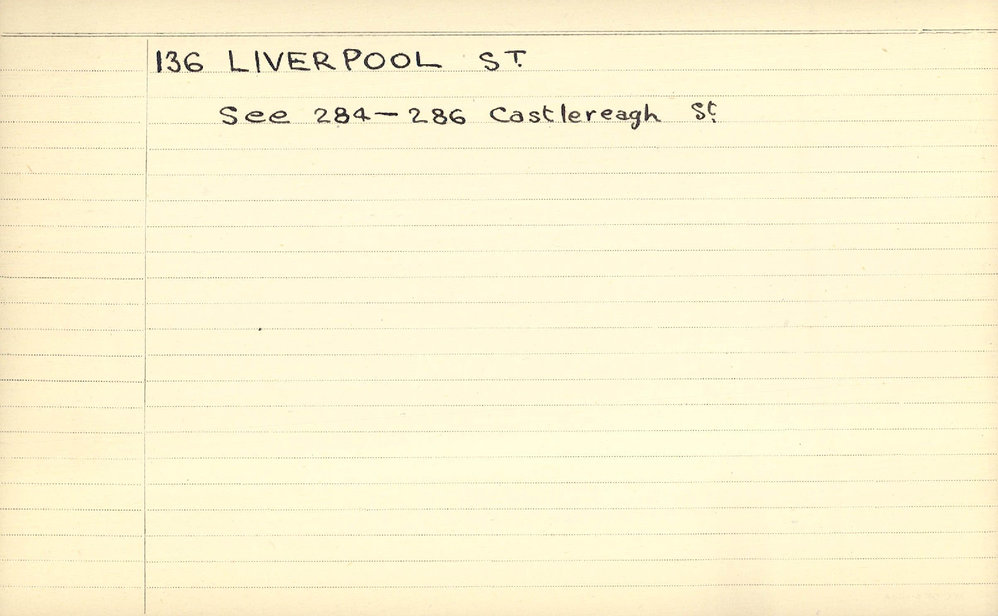 136 LIVERPOOL ST.
See 284-286 Castlereagh St.